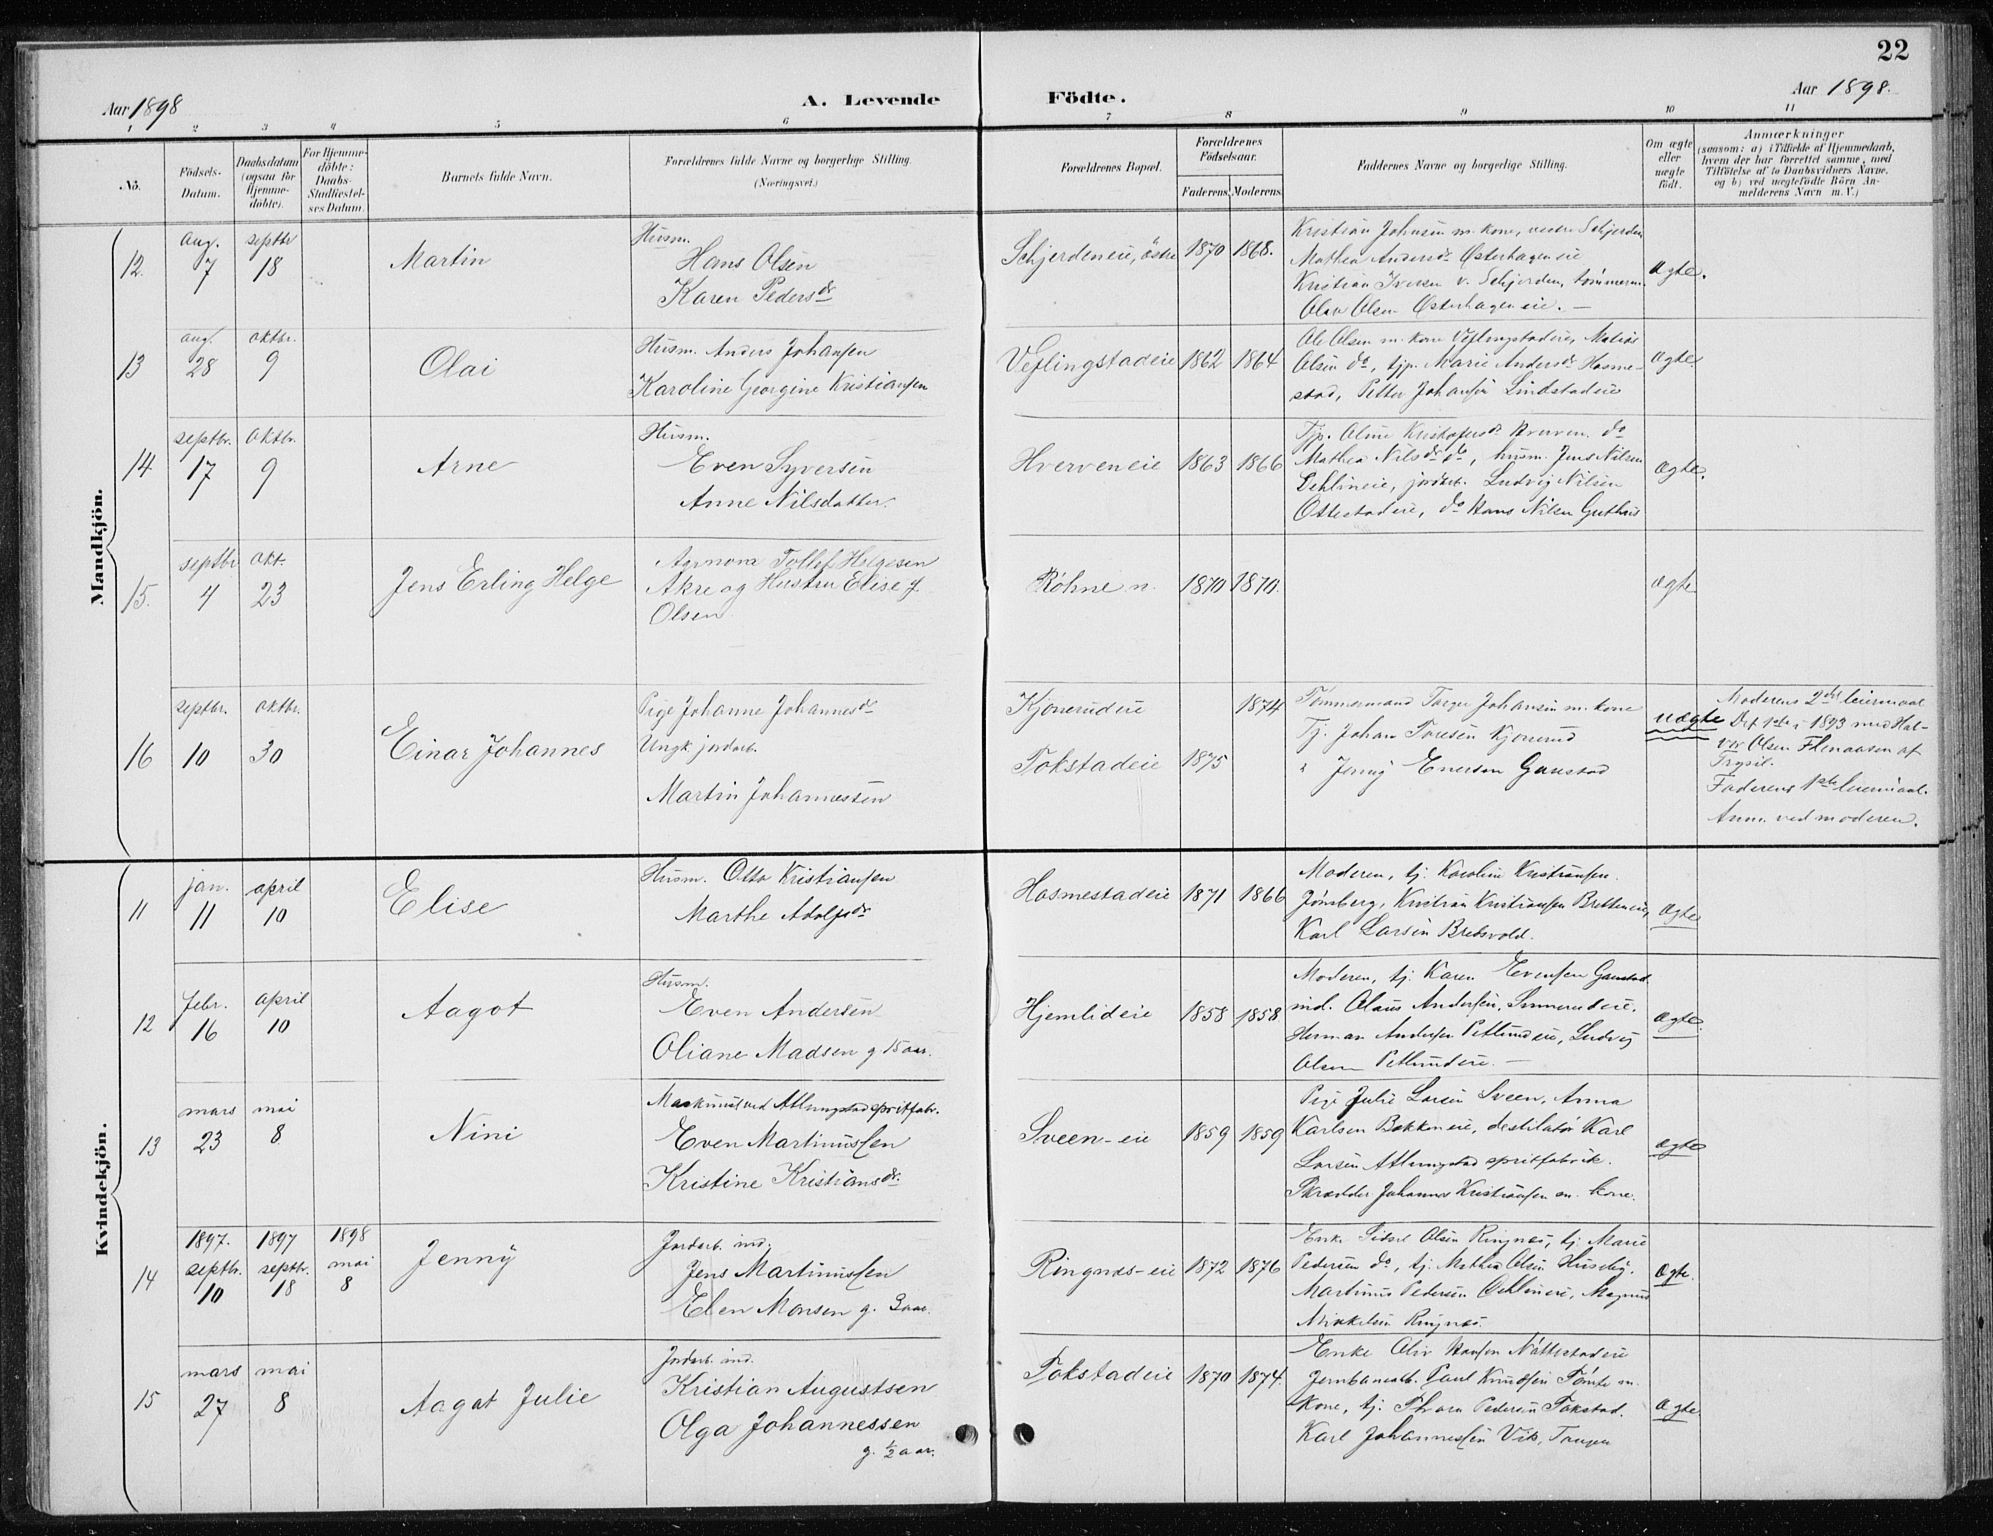 22
Aar 1898
A. Levende Födte.
Aar 1898.
1 2 3 4 5 6 7 8 9 10 11
No.
Födsels-Datum.
Daabsdatum (ogsaa for Hjemme-döbte).
For Hjemme-döbte: Daabs-Stadfæstel-ses Datum.
Barnets fulde Navn.
Forældrenes fulde Navne og borgerlige Stilling. (Næringsvei.)
Forældrenes Bopæl.
Forældrenes Födselsaar.
Faderens. Moderens.
Faddernes Navne og borgerlige Stilling.
Om ægte eller uægte födt.
Anmærkninger
(saasom: a) i Tilfælde af Hjemmedaab, hvem der har forrettet samme, med Tilföielse af to Daabsvidners Navne, og b) ved uægtefödte Börn An-melderens Navn m. V.)
Mandkjön.
12.
aug. 7
septbr 18
Martin
Husm.
Hans Olsen
Karen Pedersdr
Schjerdeneie, östre
1870 1868.
Kristian Johnsen m. kone, vestre Schjerden
Mathea Andersdr Østerhageneie
Kristian Iversen v. Schjerden, tømmerm.
Olav Olsen Østerhageneie. —
Ægte.
13
aug. 28
oktbr. 9
Olai
Husm. Anders Johansen
Karoline Georgine Kristiansen
Veflingstadeie
1862 1864
Ole Olsen m. kone Veflingstadeie, Matias
Olsen do, tjp. Marie Andersdr Hosme-
stad, Petter Johansen Lindstadeie
Ægte.
14
septbr. 17
oktbr. 9
Arne
Husm.
Even Syversen
Anne Nilsdatter.
Hverveneie
1863 1866
Tjp. Oline Kristofersdr Hverven. do
Mathea Nilsdr do, husm. Jens Nilsen
Dehlineie, jordarb. Ludvig Nilsen
Ottestadeie, do Hans Nilsen Guthus
Ægte.
15.
septbr 4
okt. 23
Jens Erling Helge
Agronom Tollef Helgesen
Akre og Hustru Elise f.
Olsen
Röhne n.
1870 1870.
Ægte
16
septbr. 10
oktbr. 30
Einar Johannes
Pige Johanne Johannesdr
Ungk. jordarb.
Martin Johannessen
Kjonerudeie
Tokstadeie
1875
1874
Tömmermand Torger Johansen m. kone
Tj. Johan Toresen Kjonerud
" Jenny Enersen Gaustad
Uægte
Moderens 2det leiermaal
Det 1ste i 1893 med Hal-
vor Olsen Flenaasen af
Trysil.
Faderens 1ste leiermaal.
Anm. ved moderen.
Kvindekjön.
11
jan. 11
april 10
Elise
Husm. Otto Kristiansen
Marthe Adolfsdr
Hosmestadeie
1871 1866
Moderen, tj. Karoline Kristiansen.
Jönsberg, Kristian Kristiansen Bretteneie,
Karl Larsen Brebsvold.
Ægte
12
febr. 16
april 10
Aagot
Husm.
Even Andersen
Oliane Madsen g. 15 aar.
Hjemlideie
1858 1858
Moderen, tj. Karen Evensen Gaustad
ind. Olaus Andersen,
Herman Andersen Petlundeie, Ludvig
Olsen Petlundeie. —
Ægte.
13
mars 23
mai 8
Nini
Maskinist ved Atlungstad spritfabr.
Even Martinussen
Kristine Kristiansdr.
Sveen-eie
1859 1859
Pige Julie Larsen Sveen, Anna
Karlsen Bakkeneie, destilatör Karl
Larsen Atlungstad spritfabrik.
Skrædder Johannes Kristiansen m. kone.
Ægte
14
1897. septbr. 10
1897 septbr. 18
1898 mai 8
Jenny
Jordarb. ind.
Jens Martinussen
Elen Monsen g. 3 aar.
Ringnæs-eie
1872 1876
Enke Sidsel Olsen Ringnæs, tj. Marie
Pedersen do, tj. Mathea Olsen Huseby.
Martinus Pedersen Dehlineie, Magnus
Mikkelsen Ringnæs.
Ægte.
15
mars 27
mai 8
Aagot Julie
Jordarb. ind.
Kristian Augustsen
Olga Johannessen
g. 1/2 aar.
Tokstadeie
1870 1874.
Enke Oliv Hansen Nöttestadeie
Jernbanearb. Paul Knudsen Tomte m.
kone, tj. Thora Pedersen Tokstad.
Karl Johannessen Vik, Tangen
Ægte.